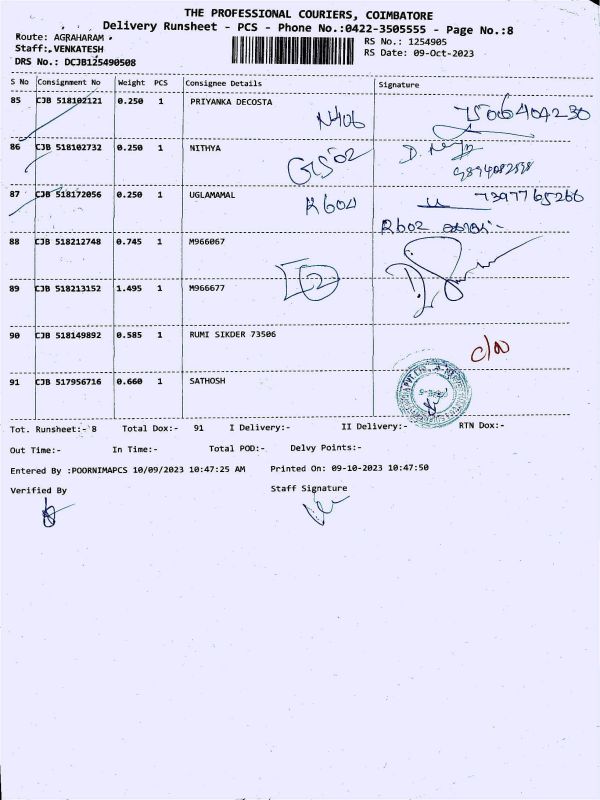 THE PROFESSIONAL COURIERS, COIMBATORE
Delivery Runsheet - PCS - Phone No.:0422-3505555 - Page No.:8
Route: AGRAHARAM
RS No.: 1254905
Staff: VENKATESH
RS Date: 09-Oct-2023
DRS No.: DCJB125490508
S No Consignment No Weight PCS Consignee Details Signature
85 CJB 518102121 0.250 1 PRIYANKA DECOSTA
N406 7506404230
86 CJB 518102732 0.250 1 NITHYA
G502
9894082598
87 CJB 518172056 0.250 1 UGLAMAMAL
R604 7397765266
R602
88 CJB 518212748 0.745 1 M966067
89 CJB 518213152 1.495 1 M966677
90 CJB 518149892 0.585 1 RUMI SIKDER 73506
91 CJB 517956716 0.660 1 SATHOSH
Tot. Runsheet:- 8 Total Dox:- 91 I Delivery:- II Delivery:- RTN Dox:-
Out Time:- In Time:- Total POD:- Delvy Points:-
Entered By :POORNIMAPCS 10/09/2023 10:47:25 AM Printed On: 09-10-2023 10:47:50
Verified By Staff Signature